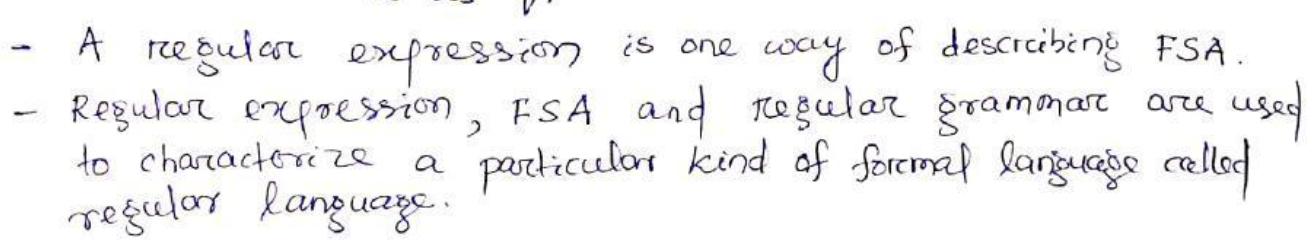 - A regular expression is one way of describing FSA.
- Regular expression, FSA and regular grammar are used
to characterize a particular kind of formal language called
regular language.